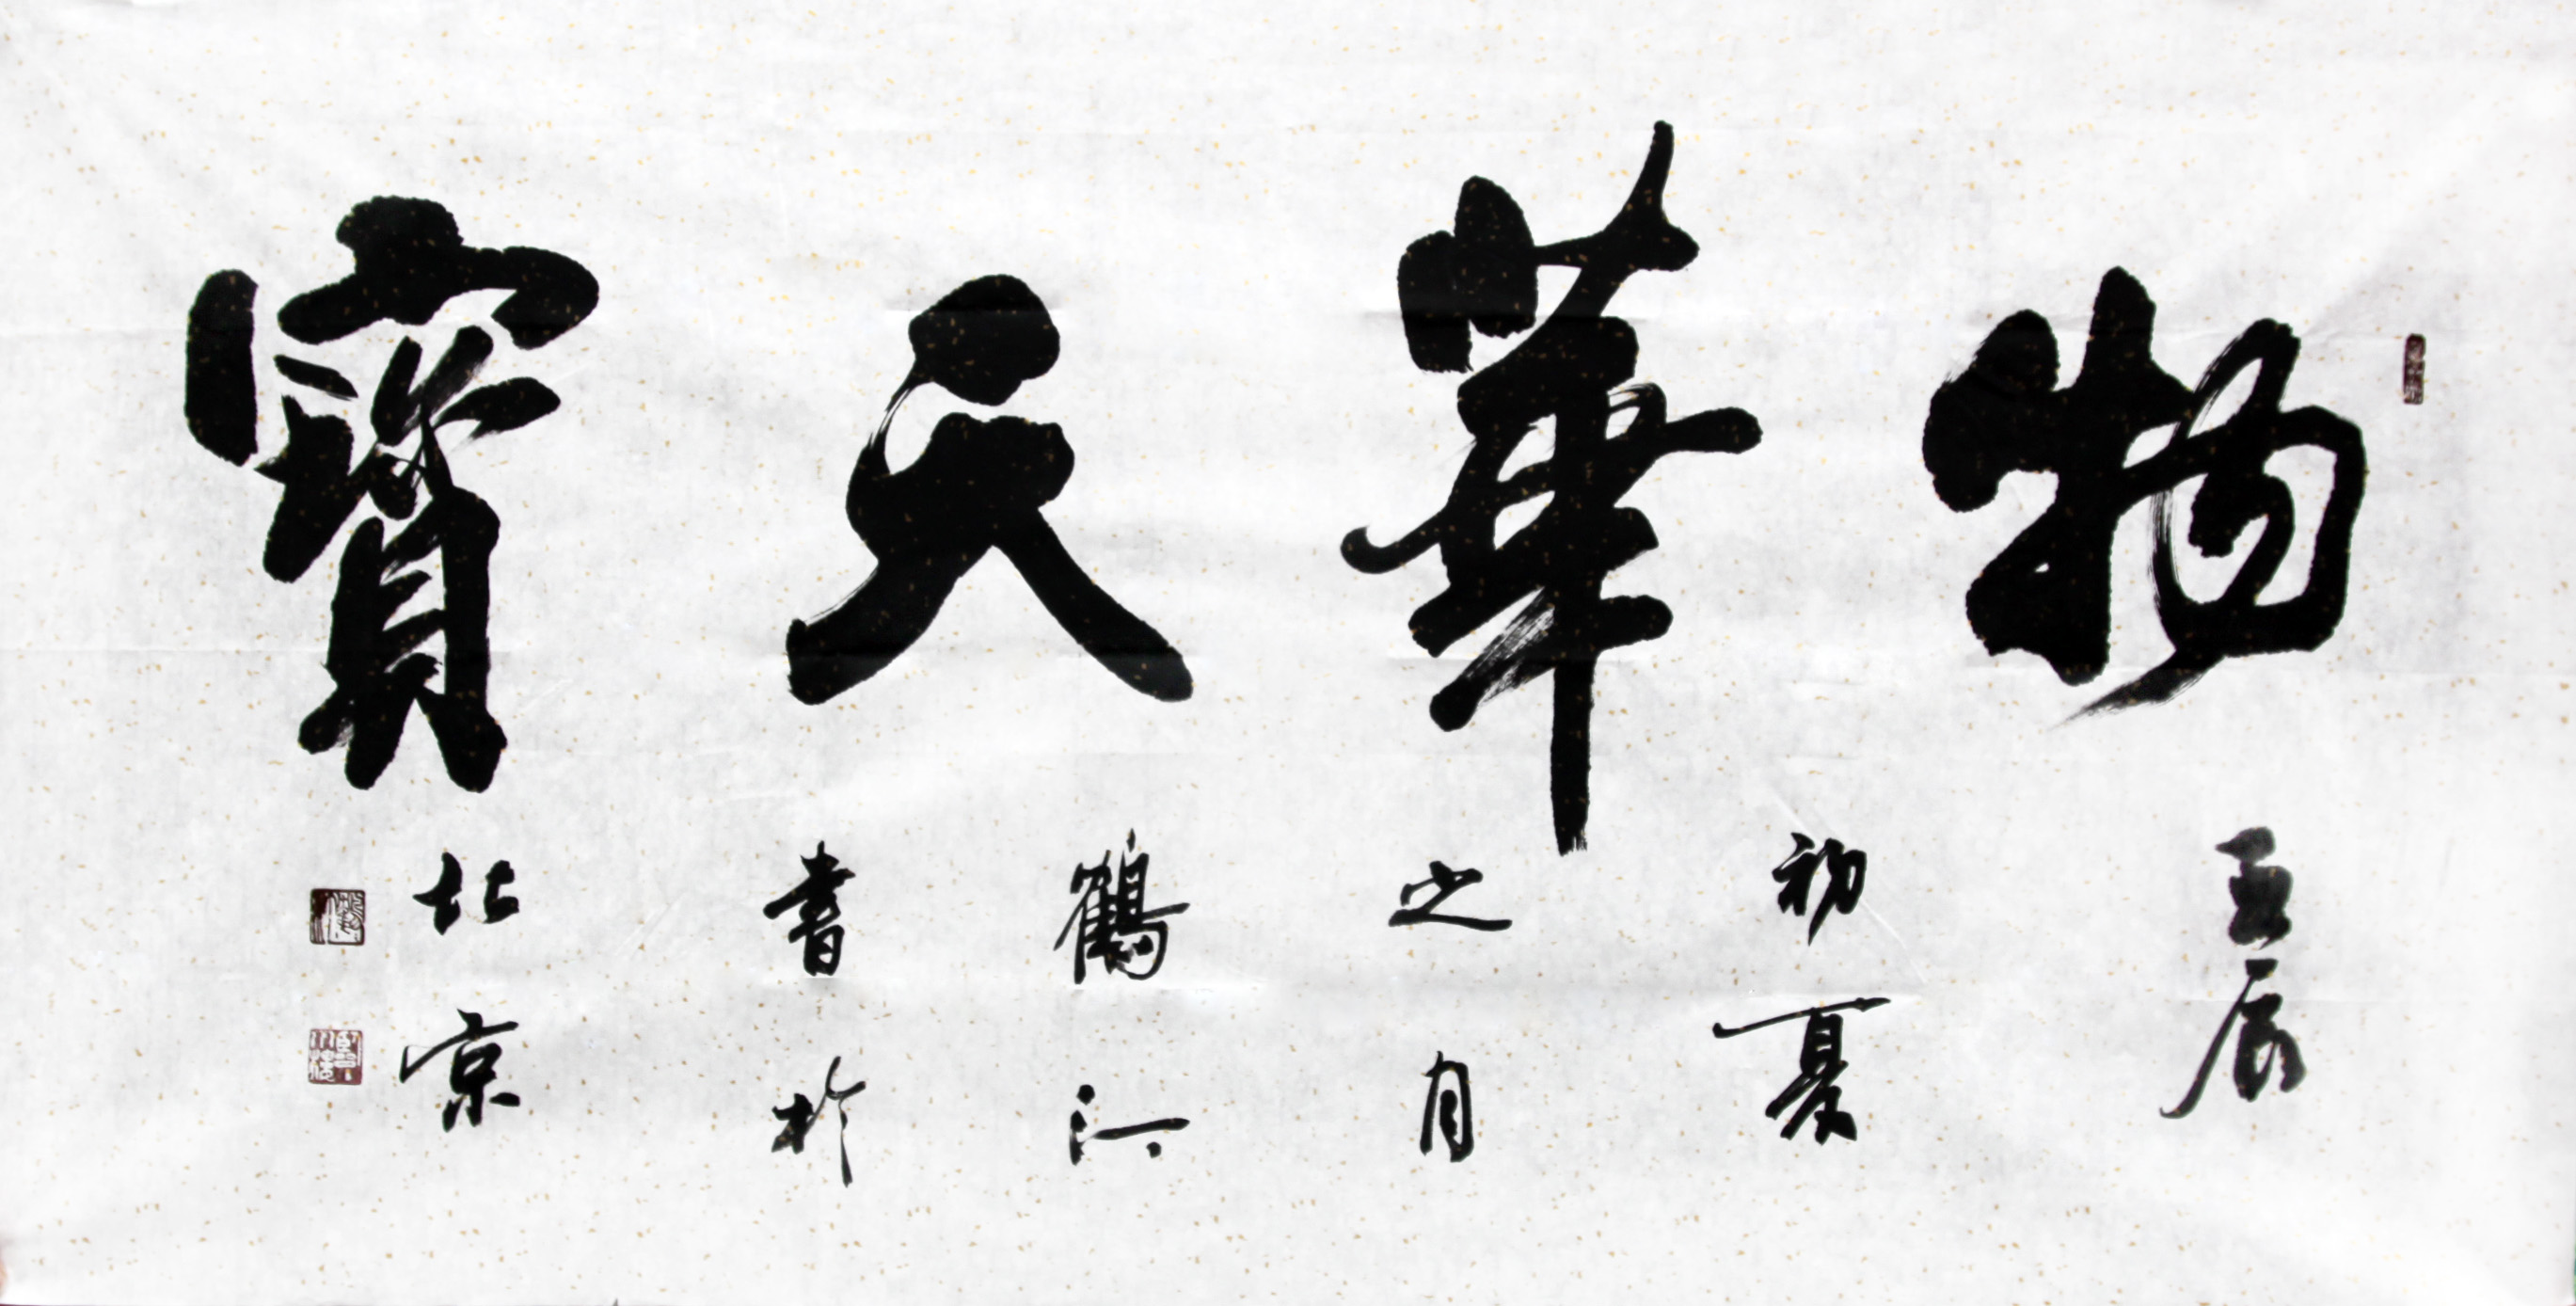 物華天寶
壬辰
初夏
之月
鶴江
書於
北京